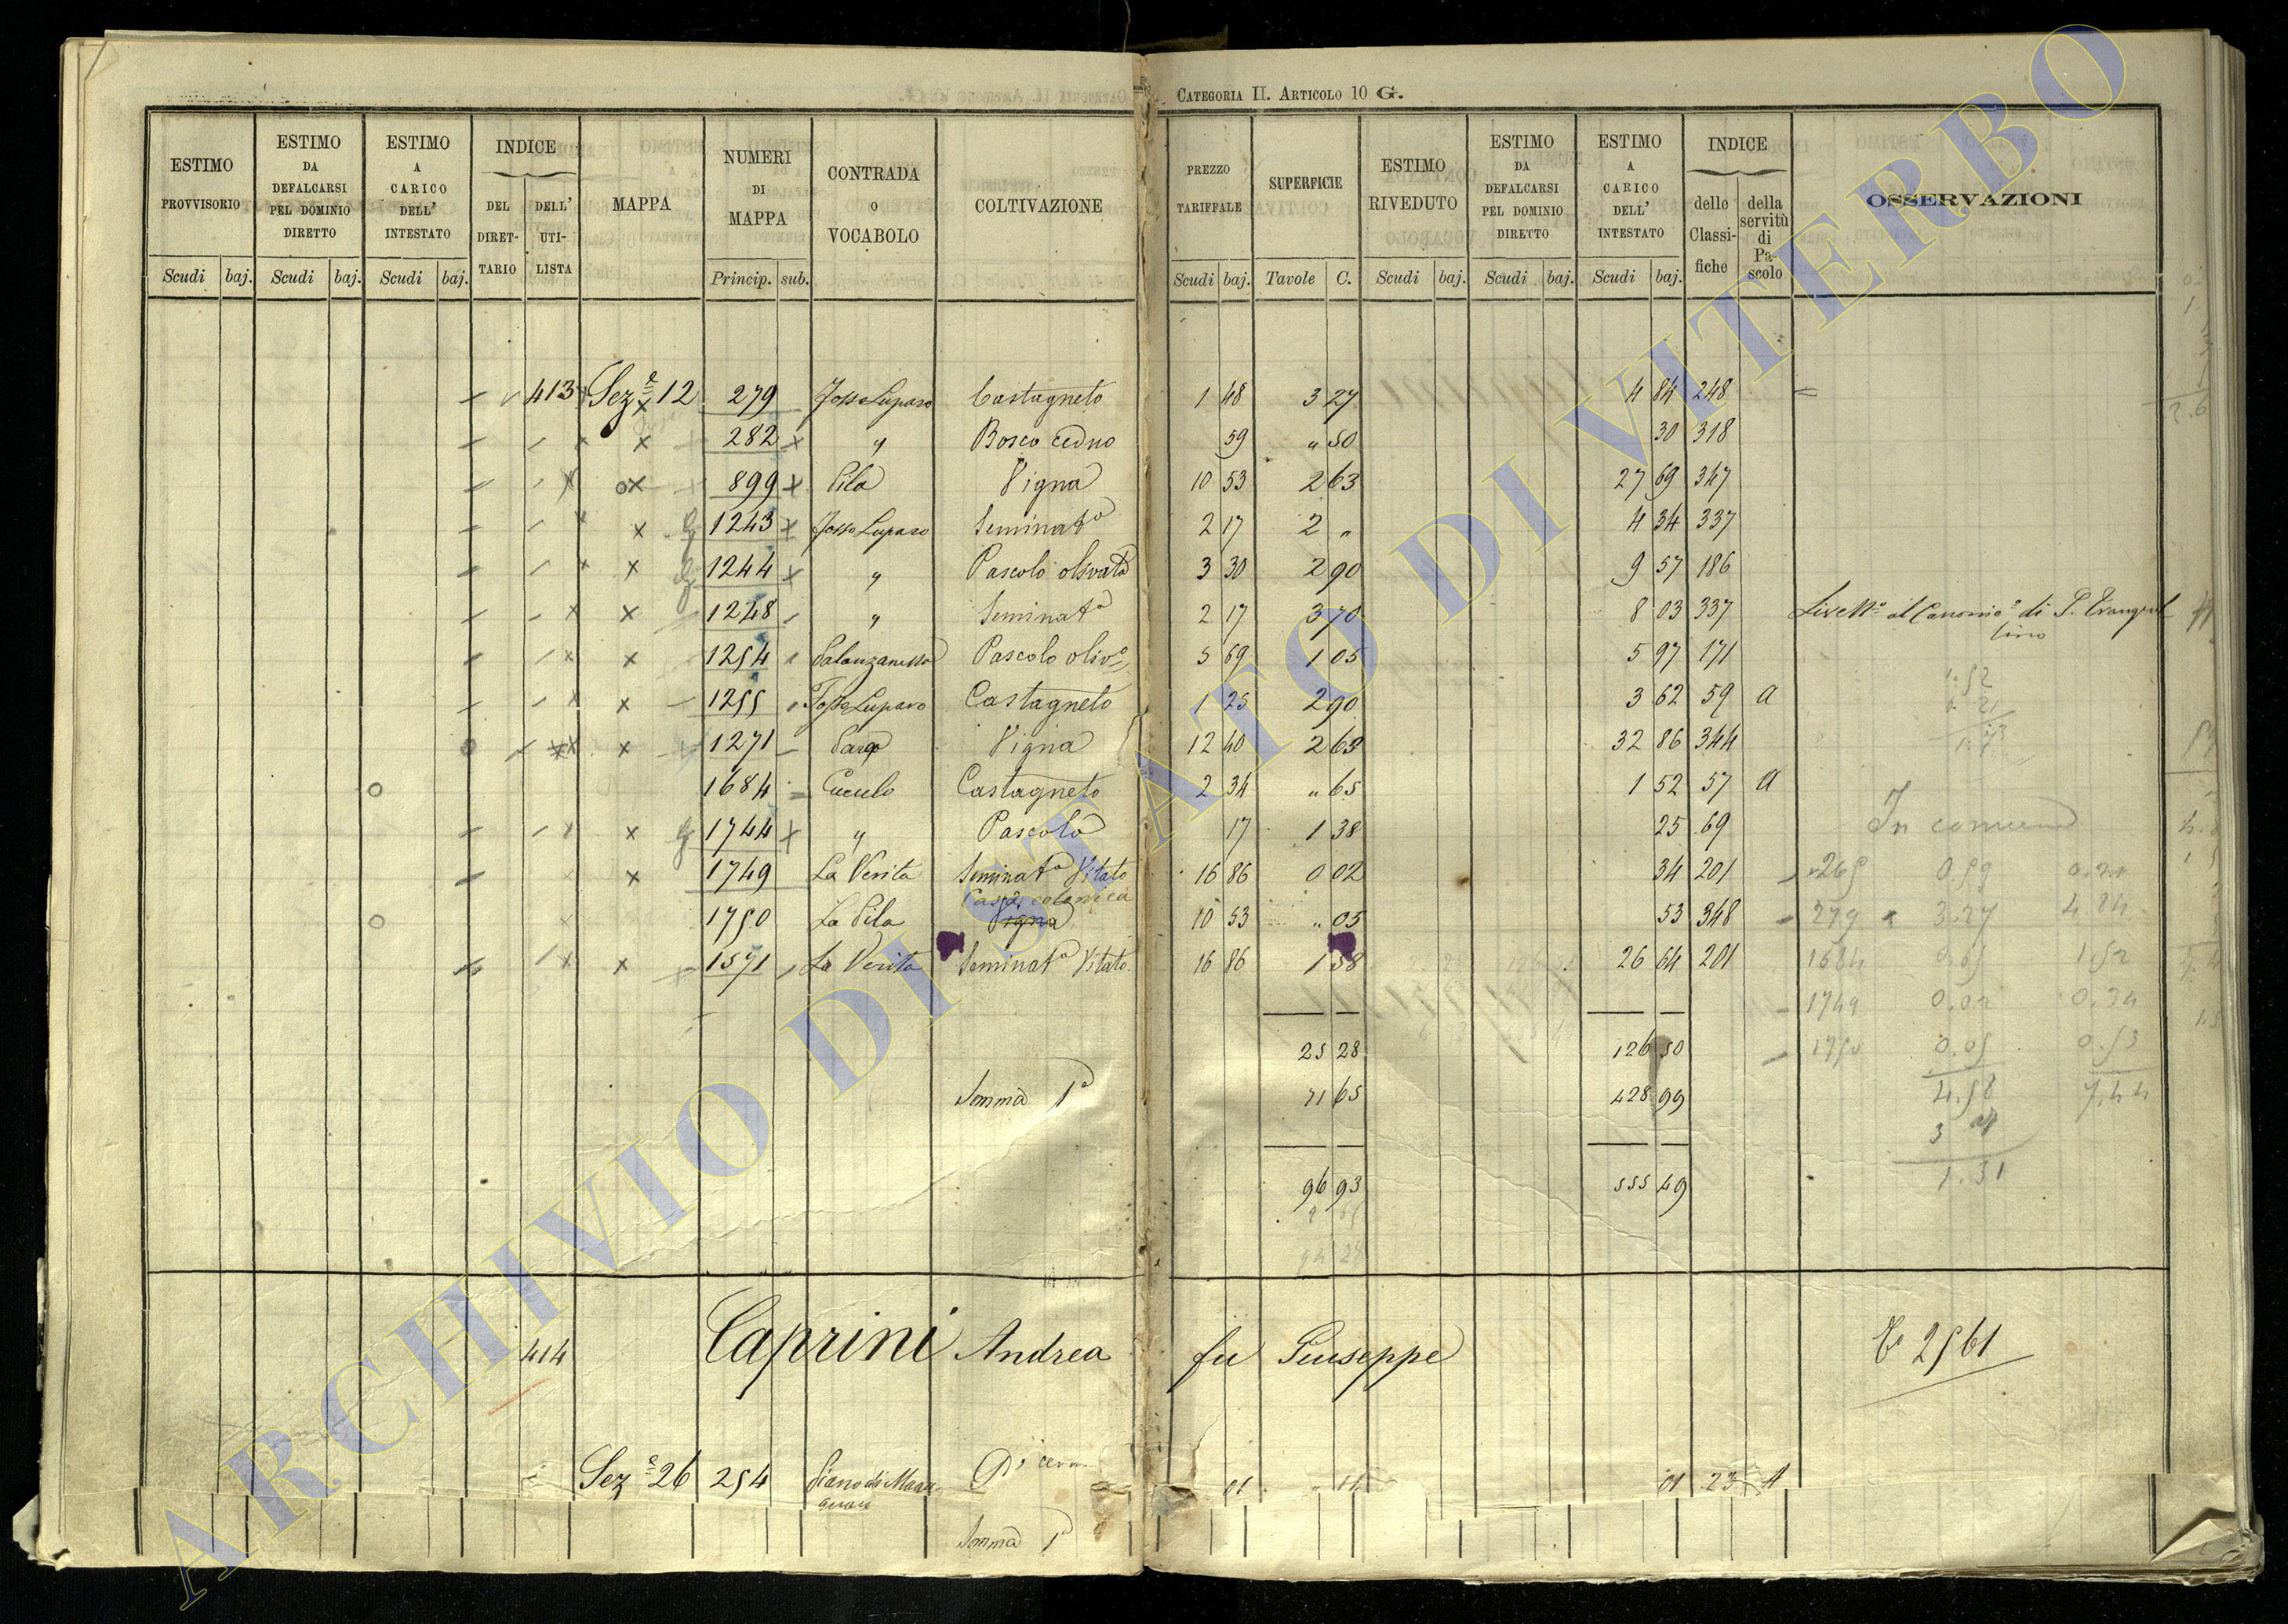 CATEGORIA II. ARTICOLO 10 G.
ESTIMO PROVVISORIO
ESTIMO DA DEFALCARSI PEL DOMINIO DIRETTO
ESTIMO A CARICO DELL' INTESTATO
INDICE
DEL DIRET- TARIO
DELL' UTI- LISTA
MAPPA
NUMERI DI MAPPA
CONTRADA O VOCABOLO
COLTIVAZIONE
PREZZO TARIFFALE
SUPERFICIE
ESTIMO RIVEDUTO
ESTIMO DA DEFALCARSI PEL DOMINIO DIRETTO
ESTIMO A CARICO DELL' INTESTATO
INDICE
delle Classi- fiche
della servitù di Pa- scolo
OSSERVAZIONI
Scudi baj. Scudi baj. Scudi baj. Princip. sub. Scudi baj. Tavole C. Scudi baj. Scudi baj. Scudi baj.
413 Sez.e 12 279 Fosso Luparo Castagneto 1 48 3 27 4 84 248
282 " Bosco ceduo 59 " 50 30 318
899 Pila Vigna 10 53 2 63 27 69 347
1243 Fosso Luparo Seminato 2 17 2 " 4 34 337
1244 " Pascolo olivato 3 30 2 90 9 57 186
1248 " Seminato 2 17 3 70 8 03 337 al Canonico di
1254 Pascolo olivo 5 69 1 05 5 97 171
1255 Fosso Luparo Castagneto 1 25 2 90 3 62 59 a
1271 Vigna 12 40 2 63 32 86 344
1684 Cuculo Castagneto 2 34 " 65 1 52 57 a
1744 " Pascolo 17 1 38 25 69
In comune
1749 La Verita Seminato Vitato 16 86 0 02 34 201
265 0.59
Casa colonica
1750 La Pila Vigna 10 53 " 05 53 348
279 3.27 4.84
1571 La Verita Seminato Vitato 16 86 1 58 26 64 201
1684 0.65 1.52
1749 0.02 0.34
25 28 126 50
1750 0.05 0.53
Somma 1a 71 65 428 99
4.58 7.44
96 93 555 49
1.31
414 Caprini Andrea fu Giuseppe 2561
Sez.e 26 254 Piano di 01 01 23 A
Somma 1a
ARCHIVIO DI STATO DI VITERBO